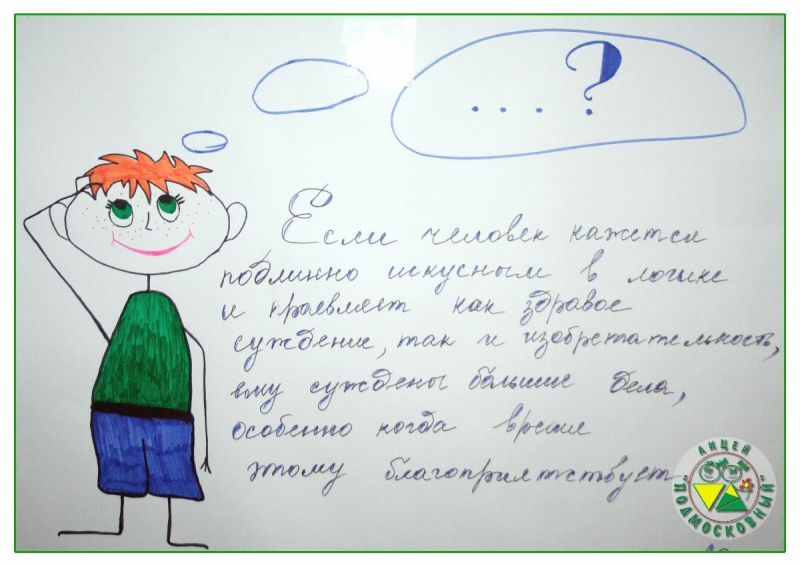 ... ?
Если человек кажется
подлинно искусным в логике
и проявляет как здравое
суждение, так и изобретательность,
ему суждены большие дела,
особенно когда время
этому благоприятствует
ЛИЦЕЙ
"ПОДМОСКОВНЫЙ"